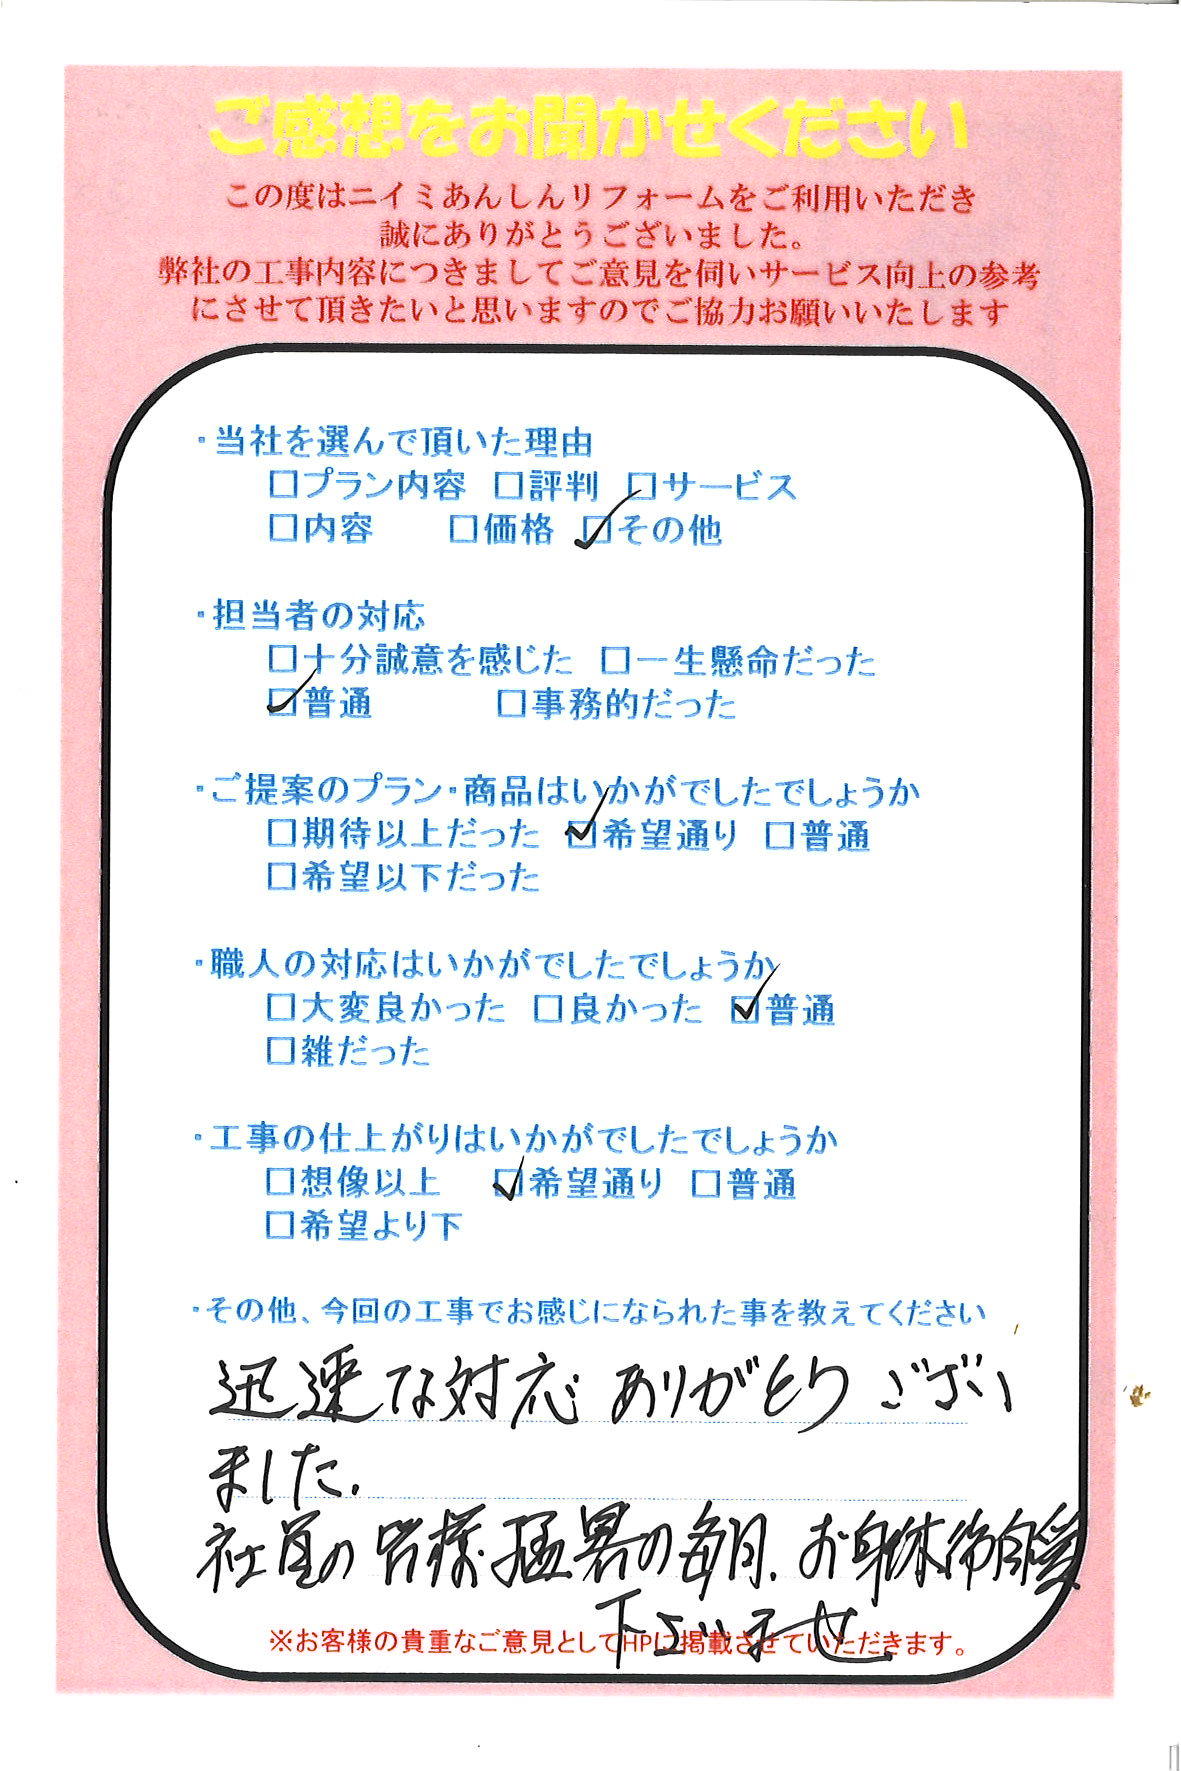 ご感想をお聞かせください
この度はニイミあんしんリフォームをご利用いただき
誠にありがとうございました。
弊社の工事内容につきましてご意見を伺いサービス向上の参考
にさせて頂きたいと思いますのでご協力お願いいたします
・当社を選んで頂いた理由
□プラン内容 □評判 □サービス
□内容 □価格 ☑その他
・担当者の対応
□十分誠意を感じた □一生懸命だった
☑普通 □事務的だった
・ご提案のプラン・商品はいかがでしたでしょうか
□期待以上だった ☑希望通り □普通
□希望以下だった
・職人の対応はいかがでしたでしょうか
□大変良かった □良かった ☑普通
□雑だった
・工事の仕上がりはいかがでしたでしょうか
□想像以上 ☑希望通り □普通
□希望より下
・その他、今回の工事でお感じになられた事を教えてください
迅速な対応ありがとうござい
ました.
社員の皆様猛暑の毎日.お身体御自愛
下さいませ
※お客様の貴重なご意見としてHPに掲載させていただきます。